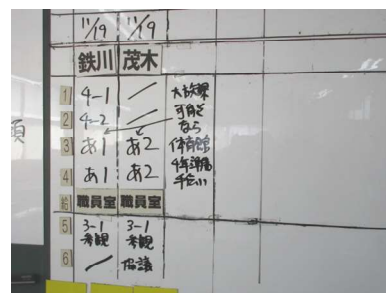 11/19 11/19
鉄川 茂木
1 4-1 /
2 4-2 /
3 あ1 あ2
4 あ1 あ2
給 職員室 職員室
5 3-1 3-1
参観 参観
6 / 協議
大放課
可能
なら
体育館
4年準備
手伝い